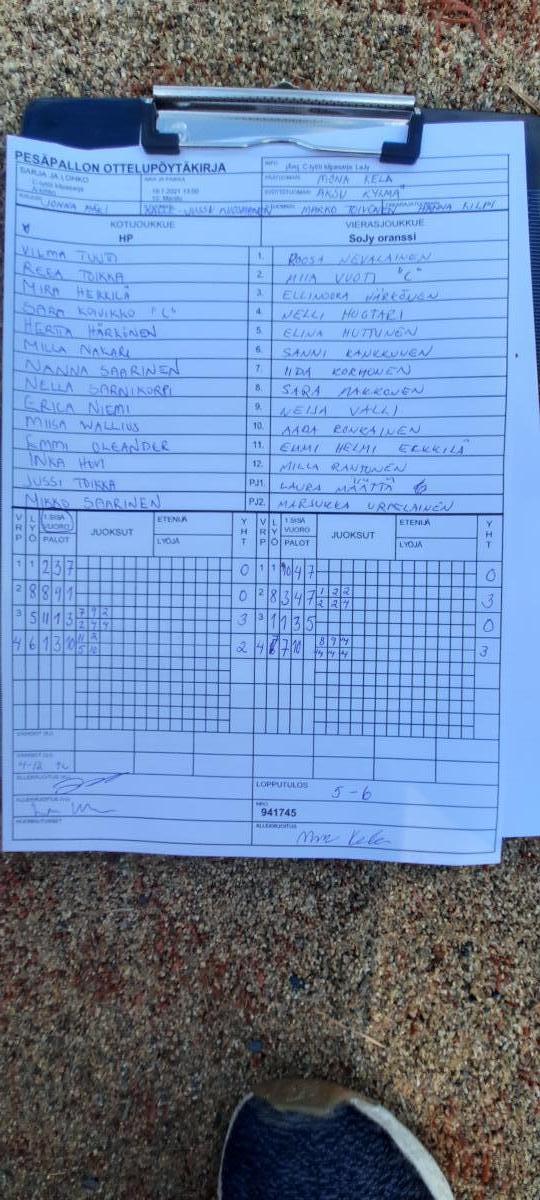 PESÄPALLON OTTELUPÖYTÄKIRJA
SARJA JA LOHKO
C-tytöt kilpasarja
18.7.2021 13:00
INFO
C-tytöt kilpasarja
MONA KELA
AKSU KYLMÄ
MARKO TOIVONEN
KOTIJOUKKUE VIERASJOUKKUE
HP SoJy oranssi
VILMA TUUTI 1. ROOSA NEVALAINEN
REEA TOIKKA 2. MIIA VUOTI "C"
MIRA HEKKILÄ 3. ELLINOORA HÄRKÖNEN
SARA KOIVIKKO "C" 4. NELLI HUOTARI
HERTTA HÄRKÖNEN 5. ELINA HUTTUNEN
MILLA NAKARI 6. SANNI KANKKUNEN
NANNA SAARINEN 7. IIDA KORHONEN
NELLA SARNIKORPI 8. SARA MAKKONEN
ERICA NIEMI 9. NEIJA VALLI
MIISA WALLIUS 10. AADA RONKAINEN
EMMI OLEANDER 11. EMMI HELMI ERKKILÄ
INKA 12. MILLA RANTONEN
JUSSI TOIKKA PJ1. LAURA MÄÄTTÄ
MIKKO SAARINEN PJ2. MARJUKKA URPELAINEN
VRP LYÖ 1.SISÄ VUORO PALOT JUOKSUT ETENIJÄ LYÖJÄ YHT VRP LYÖ 1.SISÄ VUORO PALOT JUOKSUT ETENIJÄ LYÖJÄ YHT
1 1 2 3 7 0 1 1 10 4 7 0
2 8 8 9 1 0 2 8 3 4 7 1 2 2 3
2 2 4
3 5 11 1 3 7 9 2 3 3 1 1 3 5 0
2 4 4
4 6 1 3 10 11 2 2 4 7 10 8 9 4 3
5 10 4 4 4
LOPPUTULOS 5-6
NRO
941745
ALLEKIRJOITUS
HUOMAUTUKSET